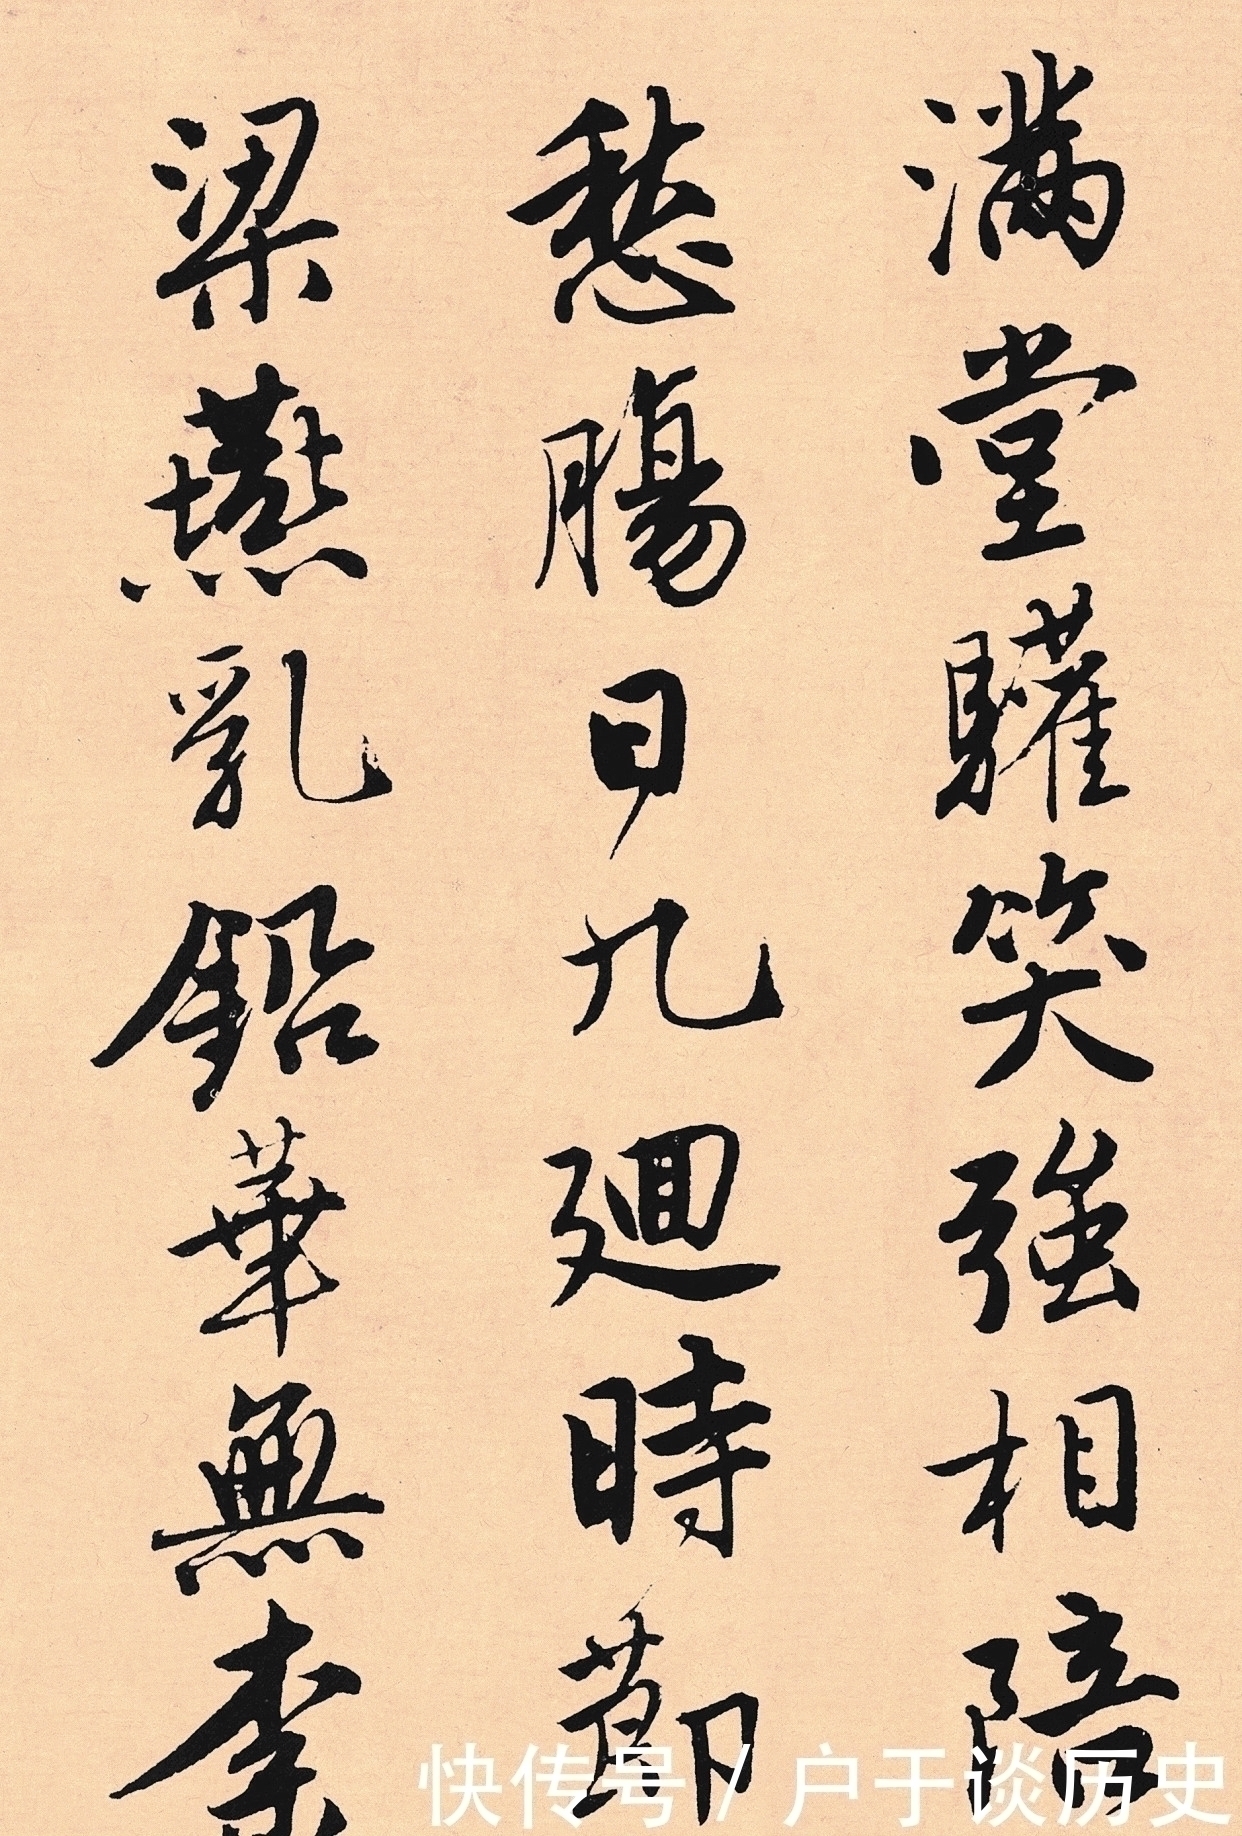 满堂驩笑強相陪
愁腸日九迴時節
梁燕乳鉛華無
快传号 / 户于谈历史